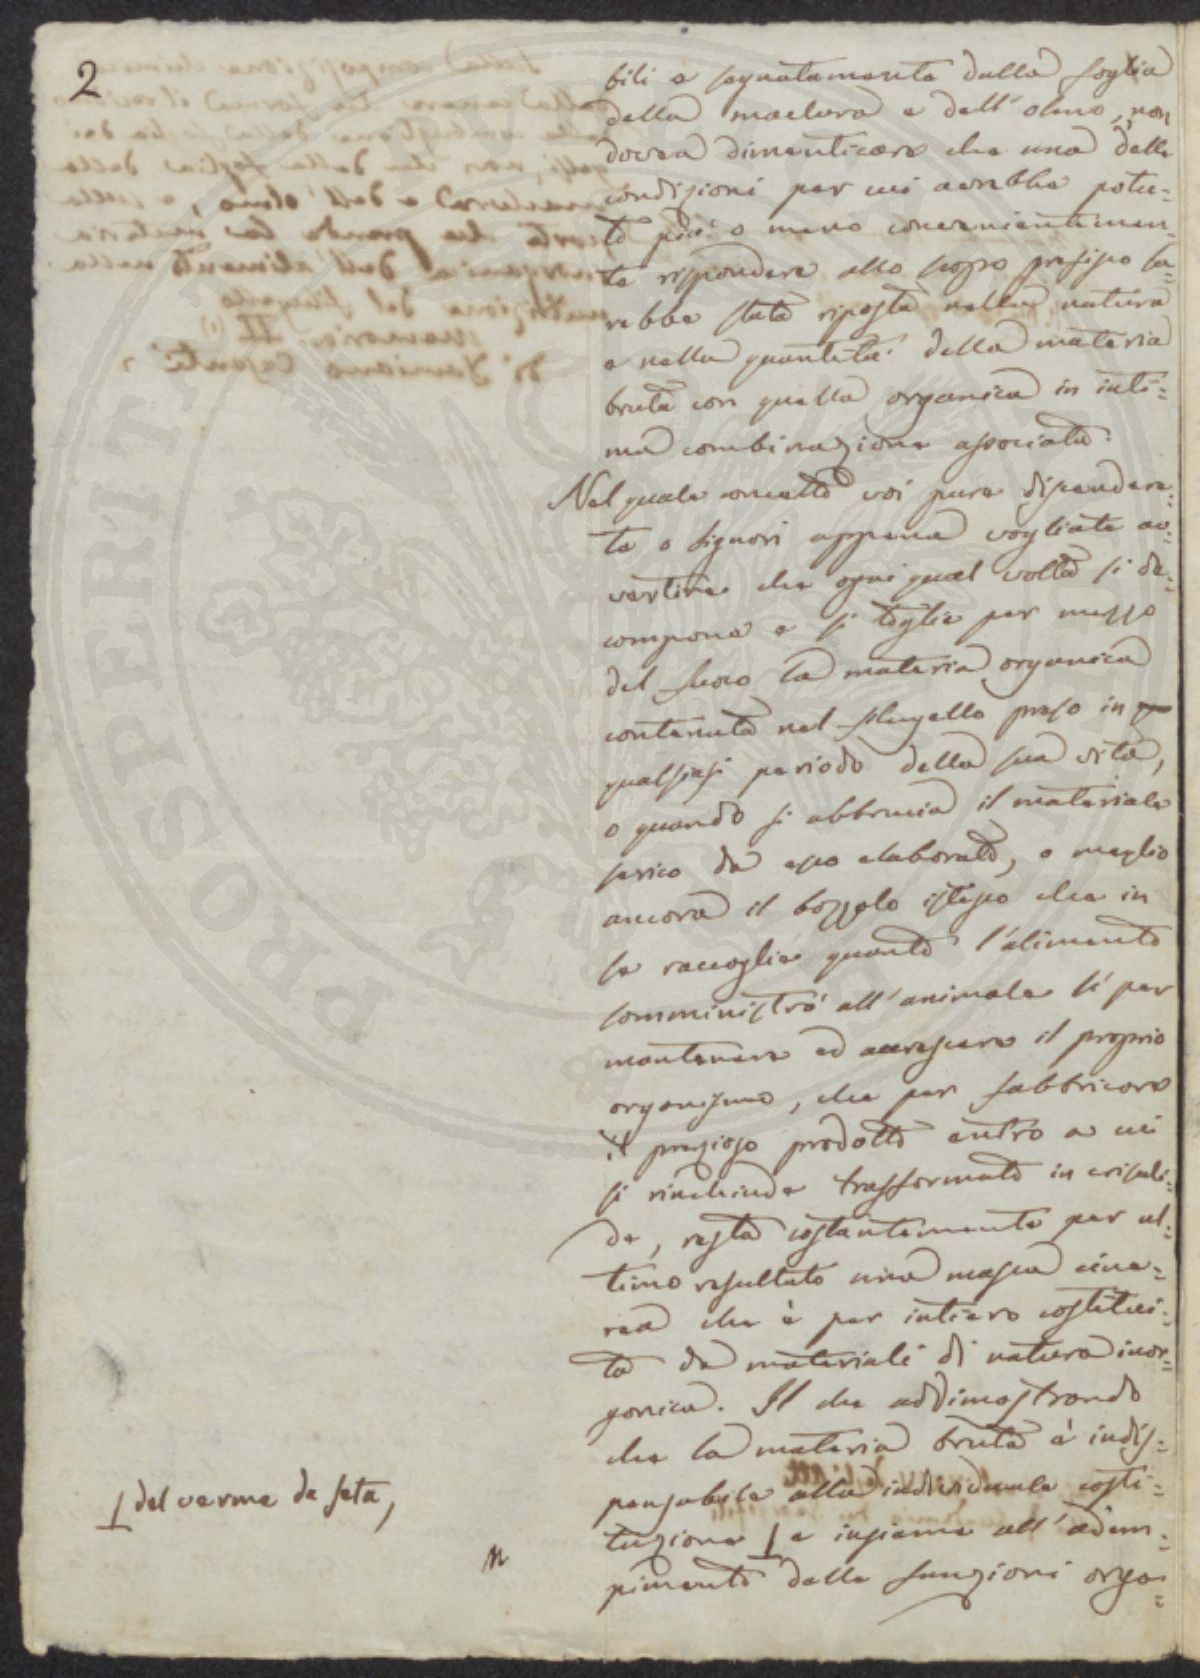 2
bili e segnatamente dalla foglia
della maclura e dell'olmo, non
dovea dimenticare che una delle
condizioni per cui avrebbe potu=
to più o meno convenientemen=
te rispondere allo scopo prefisso sa=
rebbe stata riposta nella natura
e nella quantità della materia
bruta con quella organica in inti=
ma combinazione associata.
Nel quale concetto voi pure discendere=
te o Signori appena vogliate av=
vertire che ogni qual volta si de=
compone e si toglie per mezzo
del fuoco la materia organica
contenuta nel filugello preso in
qualsiasi periodo della sua vita,
o quando si abbrucia il materiale
serico da esso elaborato, o meglio
ancora il bozzolo istesso che in
se raccoglie quanto l'alimento
somministrò all'animale sì per
mantenere ed accrescere il proprio
organismo, che per fabbricare
il prezioso prodotto entro a cui
si rinchiude trasformato in crisali=
de, resta costantemente per ul=
timo resultato una massa cine=
rea che è per intiero costitui=
ta da materiali di natura inor=
ganica. Il che addimostrando
che la materia bruta è indis=
pensabile alla individuale costi=
tuzione e insieme all'adem=
pimento delle funzioni orga=
del verme da seta,
PROSPERITÀ